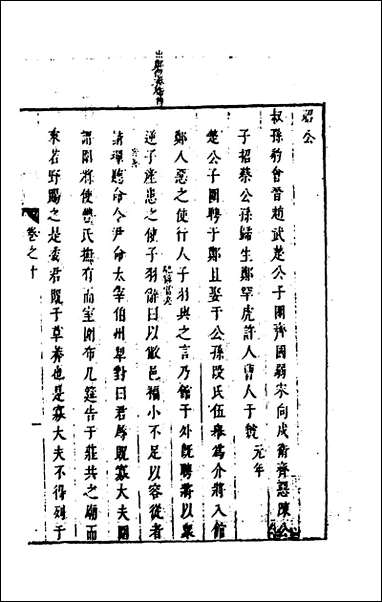 昭公
叔孫豹會晉趙武楚公子圍齊國弱宋向戌衛齊惡陳公
子招蔡公孫歸生鄭罕虎許人曹人于虢 元年
楚公子圍聘于鄭且娶于公孫段氏伍舉爲介將入館
鄭人惡之使行人子羽與之言乃館于外既聘將以衆
逆子產患之使子羽辭曰以敝邑褊小不足以容從者
請墠聽命令尹命太宰伯州犁對曰君辱貺寡大夫圍
謂圍將使豐氏撫有而室圍布几筵告于莊共之廟而
來若野賜之是委君貺于草莽也是寡大夫不得列于
卷之十
一